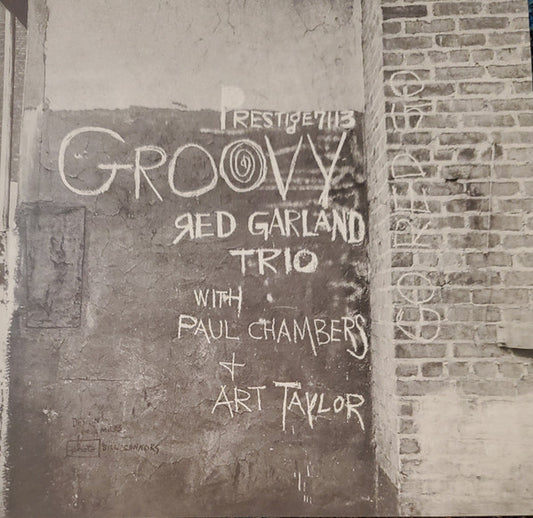 PRESTIGE 7113
GROOVY
RED GARLAND
TRIO
WITH
PAUL CHAMBERS
+
ART TAYLOR
DESIGN
BILL CONNORS